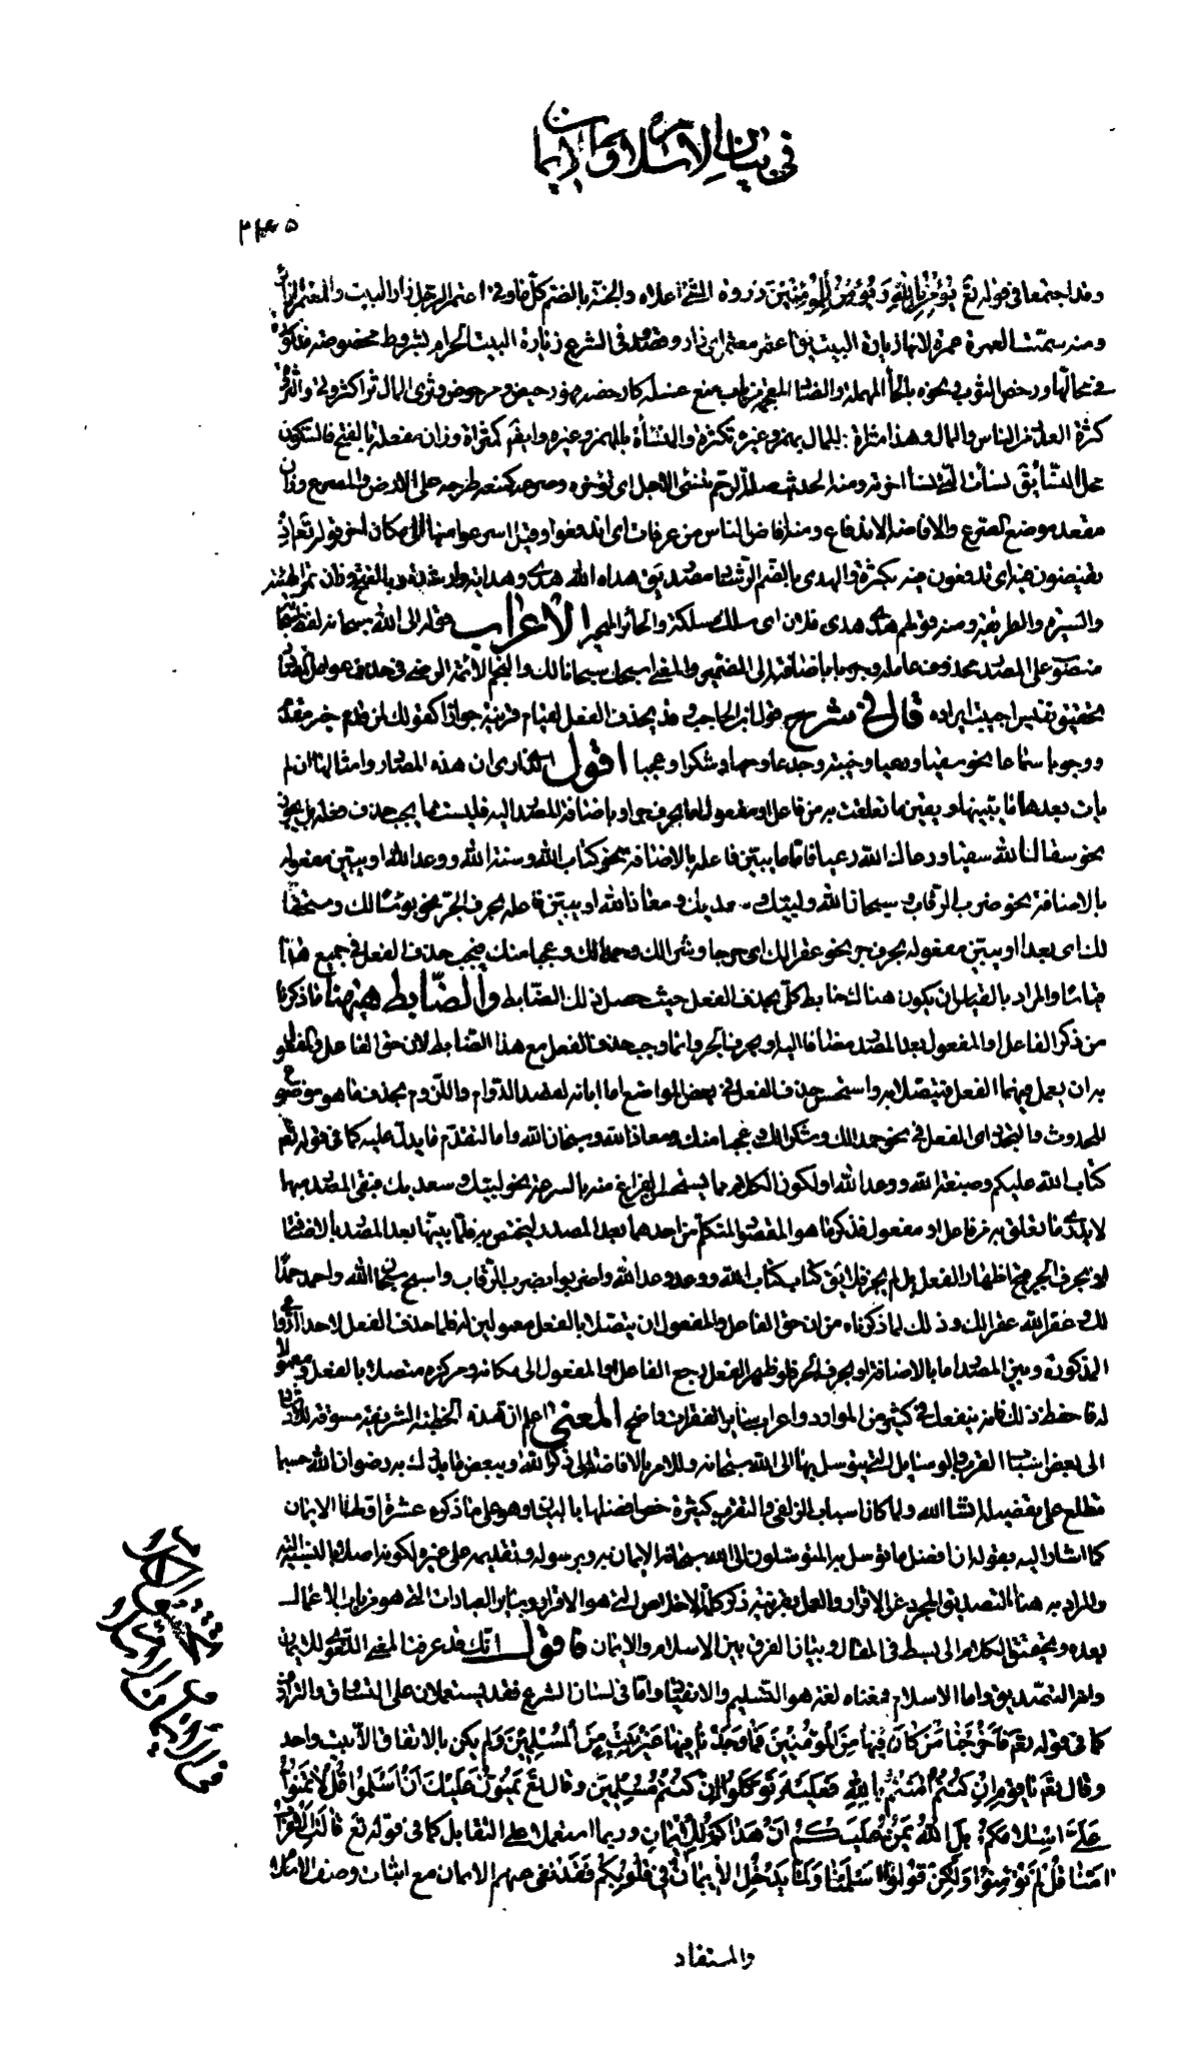 في بيان الاسلام والايمان
وقد اجتمعا في قوله تع يؤمن بالله ويؤمن للمؤمنين وذروة الشئ اعلاه والجنة بالضم كل ما وقى اعتمر الرجل زار البيت والمعتمر الزائر
ومنه سميت العمرة عمرة لانها زيارة البيت يق اعتمر معتمر اى زار وقصد وفي الشرع زيارة البيت الحرام بشروط مخصوصة مذكورة
في محالها ورحض الثوب ونحوه بالحاء المهملة والضاد المعجمة من باب منع غسله كارحضه فهو رحيض ومرحوض وثرى المال
كثرة العدد من الناس والمال وهذا مثراة للمال بهمز وغيره تكثرة والمنسأة بالهمز وغيره وايض كمثراة وزان مفعلة بالفتح فالسكون
محل النسأ يق نسأت الشئ نسأ اخرته ومنه الحديث صلة الرحم تنسئ الاجل اى تؤخره وصرعه كمنعه طرحه على الارض والمصرع وزان
مقعد موضع الصرع والافاضة الاندفاع ومنه افاض الناس من عرفات اى اندفعوا وقيل اسرعوا منها الى مكان اخر قوله تع اذ
تفيضون فيه اى تدفعون فيه بكثرة والهدى بالضم الرشاد مصدر يق هداه الله هدى وهداية ارشده وبالفتح وزان تمر الهيئة
والسيرة والطريقة ومنه قولهم هدى هدى فلان اى سلك مسلكه والحائر المتحير الاعراب قوله الى الله سبحانه لفظ سبحان
منصوب على المصدر محذوف عامله وجوبا باضافته الى الضمير والمعنى اسبحك سبحانا لك والنجم الائمة الرضى في حذف عوامل المصادر
تحقيق نفيس احببت ايراده قال في شرح قول ابن الحاجب وقد يحذف الفعل لقيام قرينة جوازا كقولك لمن قدم خير مقدم
ووجوبا سماعا نحو سقيا ورعيا وخيبة وجدعا وحمدا وشكرا وعجبا اقول الذى ارى ان هذه المصادر وامثالها ان لم
يات بعدها ما يبينها ويعين ما تعلقت به من فاعل او مفعول اما بحرف جر او باضافة المصدر اليه فليست مما يجب حذف فعله بل يجوز
نحو سقاك الله سقيا ورعاك الله رعيا فاما ما يبين فاعله بالاضافة نحو كتاب الله وسنة الله ووعد الله او يبين مفعوله
بالاضافة نحو ضرب الرقاب وسبحان الله ولبيك وسعديك ومعاذ الله او يبين فاعله بحرف الجر نحو بؤسا لك وسحقا
لك اى بعدا او يبين مفعوله بحرف جر نحو عقرا لك اى جرحا وشكرا لك وحمدا لك وعجبا منك فيجب حذف الفعل في جميع هذا
قياسا والمراد بالقياس ان يكون هناك ضابط كلى يحذف الفعل حيث حصل ذلك الضابط والضابط هيهنا ما ذكرنا
من ذكر الفاعل او المفعول بعد المصدر مضافا اليه او بحرف الجر وانما وجب حذف الفعل مع هذا الضابط لان حق الفاعل والمفعول
به ان يعمل فيهما الفعل فيتصلا به واستحسن حذف الفعل في بعض المواضع اما ابانة لقصد الدوام واللزوم بحذف ما هو موضوع
للحدوث والتجدد اى الفعل في نحو حمدا لك وشكرا لك وعجبا منك ومعاذ الله وسبحان الله واما لتقدم ما يدل عليه كما في قوله تعم
كتاب الله عليكم وصبغة الله ووعد الله او لكون الكلام مما يستحسن الفراغ منه بالسرعة نحو لبيك وسعديك فبقى المصدر مبهما
لا يدرى ما تعلق به من فاعل او مفعول فذكر ما هو المقصود المتكلم من احدهما بعد المصدر ليختص به فلما بينتهما بعد المصدر بالاضافة
او بحرف الجر قبح اظهار الفعل بل لم يجز فلا يق كتاب كتاب الله ووعد وعد الله واضربوا ضرب الرقاب واسبح سبحان الله واحمد حمدا
لك وعقر الله عقرا لك وذلك لما ذكرناه من ان حق الفاعل والمفعول ان يتصلا بالفعل معمولين له فلما حذف الفعل لاحد الدواعى
المذكورة وبين المصدر اما بالاضافة او بحرف الجر فلو ظهر الفعل رجع الفاعل او المفعول الى مكانه ومركزه متصلا بالفعل ومعمولا
له فاحفظ ذلك فانه ينفعك في كثير من الموارد واعراب ساير الفقرات واضح المعنى اعلم ان هذه الخطبة الشريفة مسوقة للارشاد
الى بعض اسباب القرب والوسايل التي يتوسل بها الى الله سبحانه وللامر بالافاضة الى ذكر الله وببعض ما يدرك به رضوان الله حسبما
تطلع على تفصيله انشاء الله ولما كان اسباب الزلفى والتقرب كثيرة خص افضلها بالبيان وهو على ما ذكره عشرة اولها الايمان
كما اشار اليه بقوله ان افضل ما توسل به المتوسلون الى الله سبحانه الايمان به وبرسوله وتقديمه على غيره لكونه اصلا بالنسبة اليه
والمراد به هنا التصديق المجرد عن الاقرار والعمل بقرينة ذكر كلمة الاخلاص التي هو الاقرار وساير العبادات التي هو من باب الاعمال
بعده وتحقيق الكلام الى بسط في المقال وبيان الفرق بين الاسلام والايمان فاقول انك قد عرفت المعنى اللغوى للايمان
وانه التصديق واما الاسلام فمعناه لغة هو التسليم والانقياد واما في لسان الشرع فقد يستعملان على التساوق والترادف
كما في قوله تعم فاخرجنا من كان فيها من المؤمنين فما وجدنا فيها غير بيت من المسلمين ولم يكن بالاتفاق الا بيت واحد
وقال تعم يا قوم ان كنتم امنتم بالله فعليه توكلوا ان كنتم مسلمين وقال تع يمنون عليك ان اسلموا قل لا تمنوا
على اسلامكم بل الله يمن عليكم ان هداكم للايمان وربما استعملا على التقابل كما في قوله تع قالت الاعراب
امنا قل لم تؤمنوا ولكن قولوا اسلمنا ولما يدخل الايمان في قلوبكم فقد نفى عنهم الايمان مع اثبات وصف الاسلام
والمستفاد